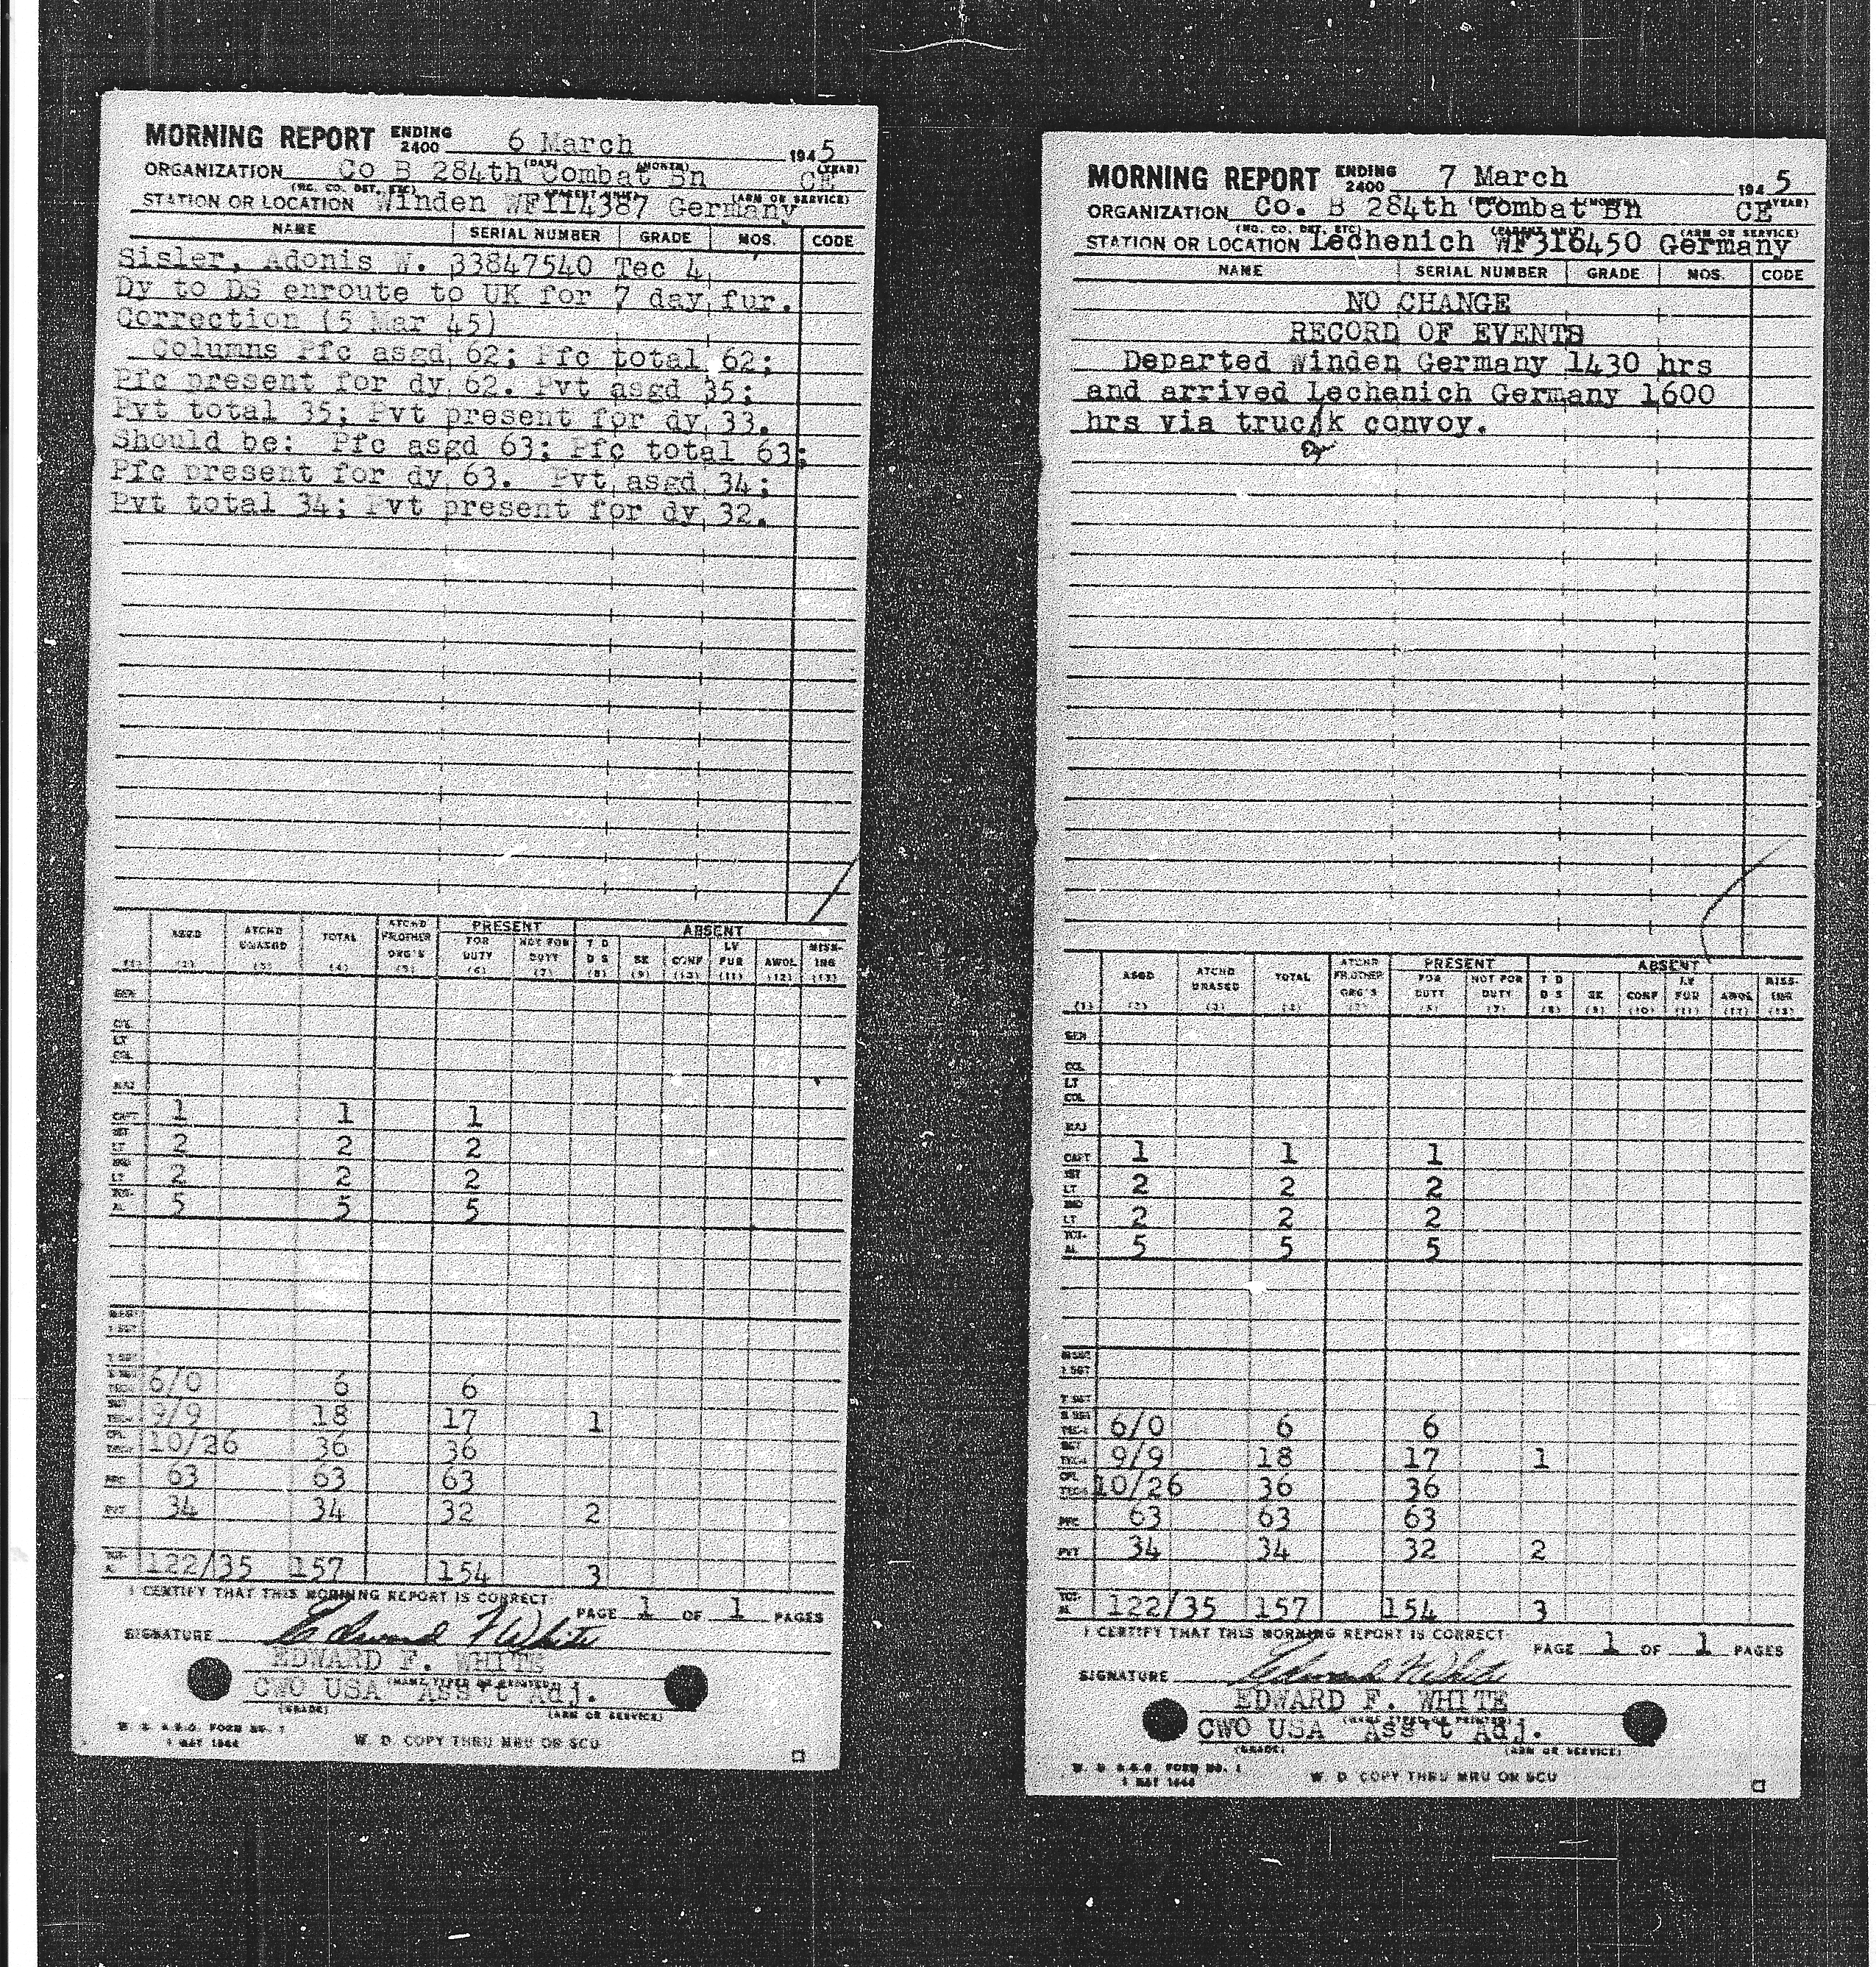 MORNING REPORT ENDING 2400 6 March 1945
(DAY) (MONTH) (YEAR)
ORGANIZATION Co B 284th Combat Bn CE
(HQ. CO. DET. ETC) (PARENT UNIT) (ARM OR SERVICE)
STATION OR LOCATION Winden WF114387 Germany
NAME SERIAL NUMBER GRADE MOS. CODE
Sisler, Adonis W. 33847540 Tec 4
Dy to DS enroute to UK for 7 day fur.
Correction (5 Mar 45)
Columns Pfc asgd 62; Pfc total 62;
Pfc present for dy 62. Pvt asgd 35;
Pvt total 35; Pvt present for dy 33.
Should be: Pfc asgd 63; Pfc total 63;
Pfc present for dy 63. Pvt asgd 34;
Pvt total 34; Pvt present for dy 32.
PRESENT ABSENT
ASGD ATCHD UNASGD TOTAL ATCHD FR OTHER ORG'S FOR DUTY NOT FOR DUTY T D D S SK CONF LV FUR AWOL MISS-ING
(1) (2) (3) (4) (5) (6) (7) (8) (9) (10) (11) (12) (13)
GEN
COL
LT COL
MAJ
CAPT 1 1 1
1ST LT 2 2 2
2ND LT 2 2 2
TOT-AL 5 5 5
M SGT
1 SGT
T SGT
S SGT TEC 3 6/0 6 6
SGT TEC 4 9/9 18 17 1
CPL TEC 5 10/26 36 36
PFC 63 63 63
PVT 34 34 32 2
TOT-AL 122/35 157 154 3
I CERTIFY THAT THIS MORNING REPORT IS CORRECT
PAGE 1 OF 1 PAGES
SIGNATURE Edward F White
EDWARD F. WHITE
(NAME TYPED OR PRINTED)
CWO USA Ass't Adj.
(GRADE) (ARM OR SERVICE)
W. D. A.G.O. FORM NO. 1
1 MAY 1944
W. D. COPY THRU MRU OR SCU
MORNING REPORT ENDING 2400 7 March 1945
(YEAR)
ORGANIZATION Co. B 284th Combat Bn CE
(HQ. CO. DET. ETC) (PARENT UNIT) (ARM OR SERVICE)
STATION OR LOCATION Lechenich WF316450 Germany
NAME SERIAL NUMBER GRADE MOS. CODE
NO CHANGE
RECORD OF EVENTS
Departed Winden Germany 1430 hrs
and arrived Lechenich Germany 1600
hrs via truck convoy.
PRESENT ABSENT
ASGD ATCHD UNASGD TOTAL ATCHD FR.OTHER ORG'S FOR DUTY NOT FOR DUTY T D D S SK CONF LV FUR AWOL MISS-ING
(1) (2) (3) (4) (5) (6) (7) (8) (9) (10) (11) (12) (13)
GEN
COL
LT COL
MAJ
CAPT 1 1 1
1ST LT 2 2 2
2ND LT 2 2 2
TOT-AL 5 5 5
M SGT
1 SGT
T SGT
S SGT TEC 3 6/0 6 6
SGT TEC 4 9/9 18 17 1
CPL TEC 5 10/26 36 36
PFC 63 63 63
PVT 34 34 32 2
TOT-AL 122/35 157 154 3
I CERTIFY THAT THIS MORNING REPORT IS CORRECT
PAGE 1 OF 1 PAGES
SIGNATURE Edward F White
EDWARD F. WHITE
(NAME TYPED OR PRINTED)
CWO USA Ass't Adj.
(GRADE) (ARM OR SERVICE)
W. D. A.G.O. FORM NO. 1
1 MAY 1944
W. D. COPY THRU MRU OR SCU